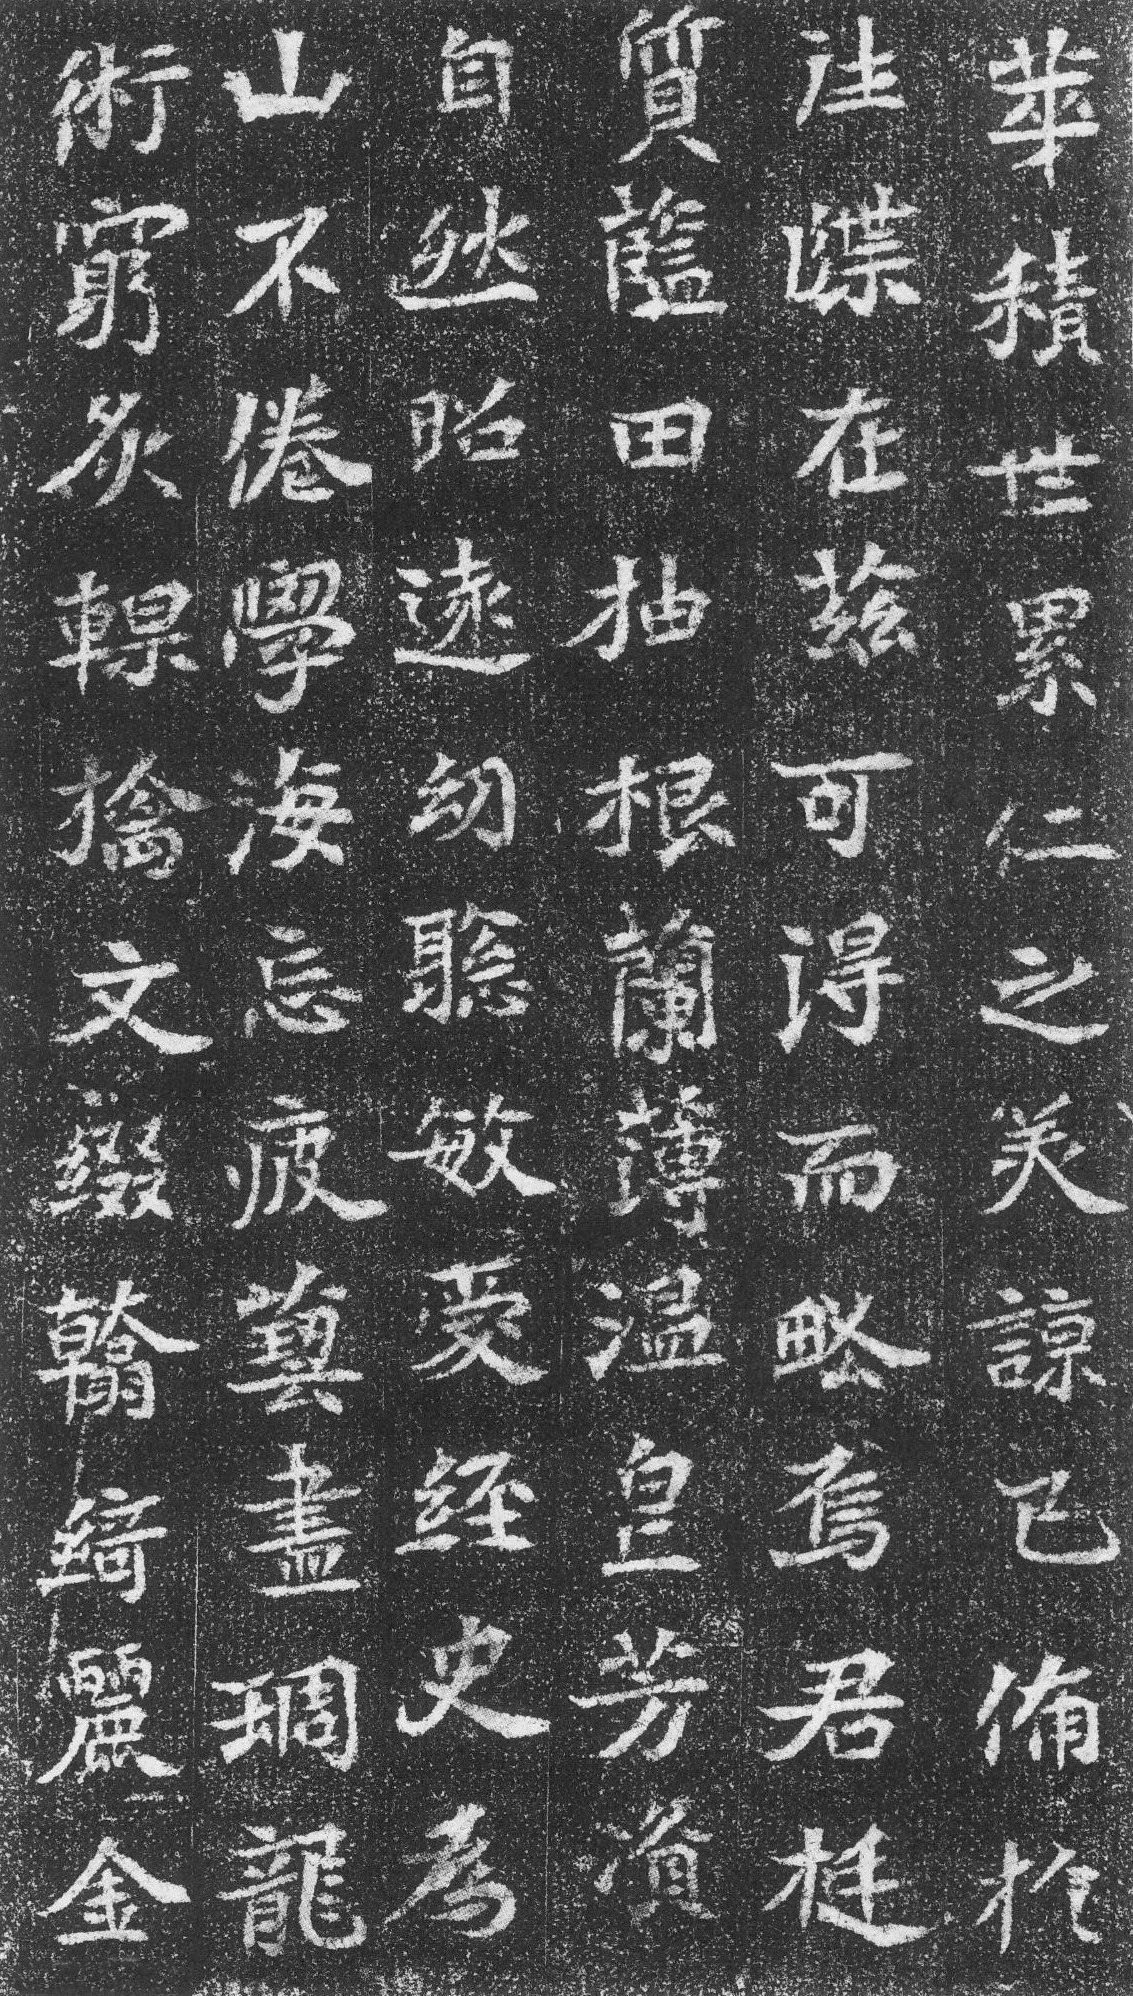 華積世累仁之美諒已備於
往牒在茲可得而略焉君挺
質藍田抽根蘭薄溫皇芳資
自然昭遠幼聰敏愛經史為
山不倦學海忘疲藝盡琱龍
術窮炙輠摛文綴翰綺麗金